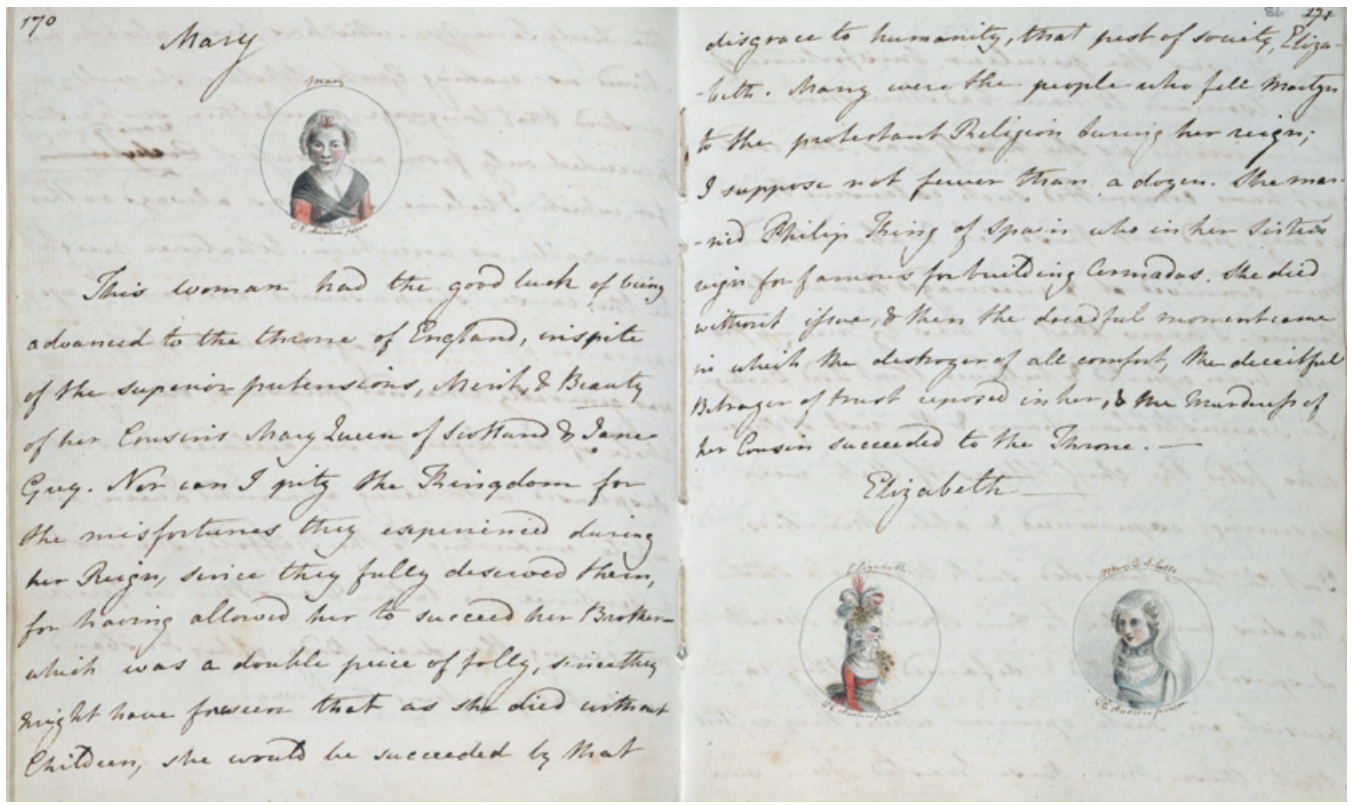 170
Mary
Mary
C E Austen pinx
This woman had the good luck of being
advanced to the throne of England, inspite
of the superior pretensions, Merit, & Beauty
of her Cousins Mary Queen of Scotland & Jane
Grey. Nor can I pity the Kingdom for
the misfortunes they experienced during
her Reign, since they fully deserved them,
for having allowed her to succeed her Brother-
which was a double peice of folly, since they
might have foreseen that as she died without
Children, she would be succeeded by that
86
171
disgrace to humanity, that pest of society, Eliza-
-beth. Many were the people who fell Martyrs
to the protestant Religion during her reign;
I suppose not fewer than a dozen. She mar-
-ried Philip King of Spain who in her Sister's
reign for famous for building Armadas. She died
without issue, & then the dreadful moment came
in which the destroyer of all comfort, the deceitful
Betrayer of trust reposed in her, & the Murderess of
her Cousin succeeded to the Throne. —
Elizabeth
Elizabeth
C E Austen pinx
Mary Q of Scots
C E Austen pinx